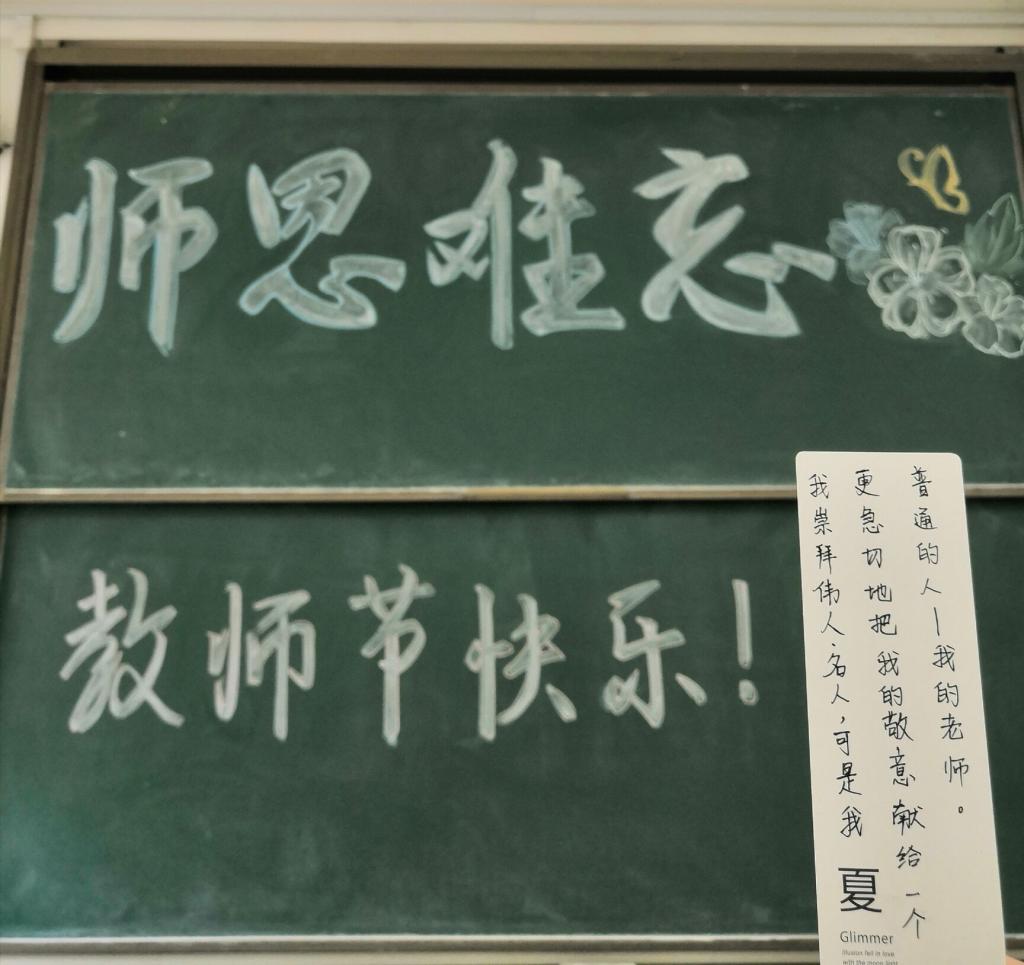 师恩难忘
教师节快乐!
我崇拜伟人、名人，可是我
更急切地把我的敬意献给一个
普通的人—我的老师。
夏
Glimmer
illusion fall in love
with the moon light